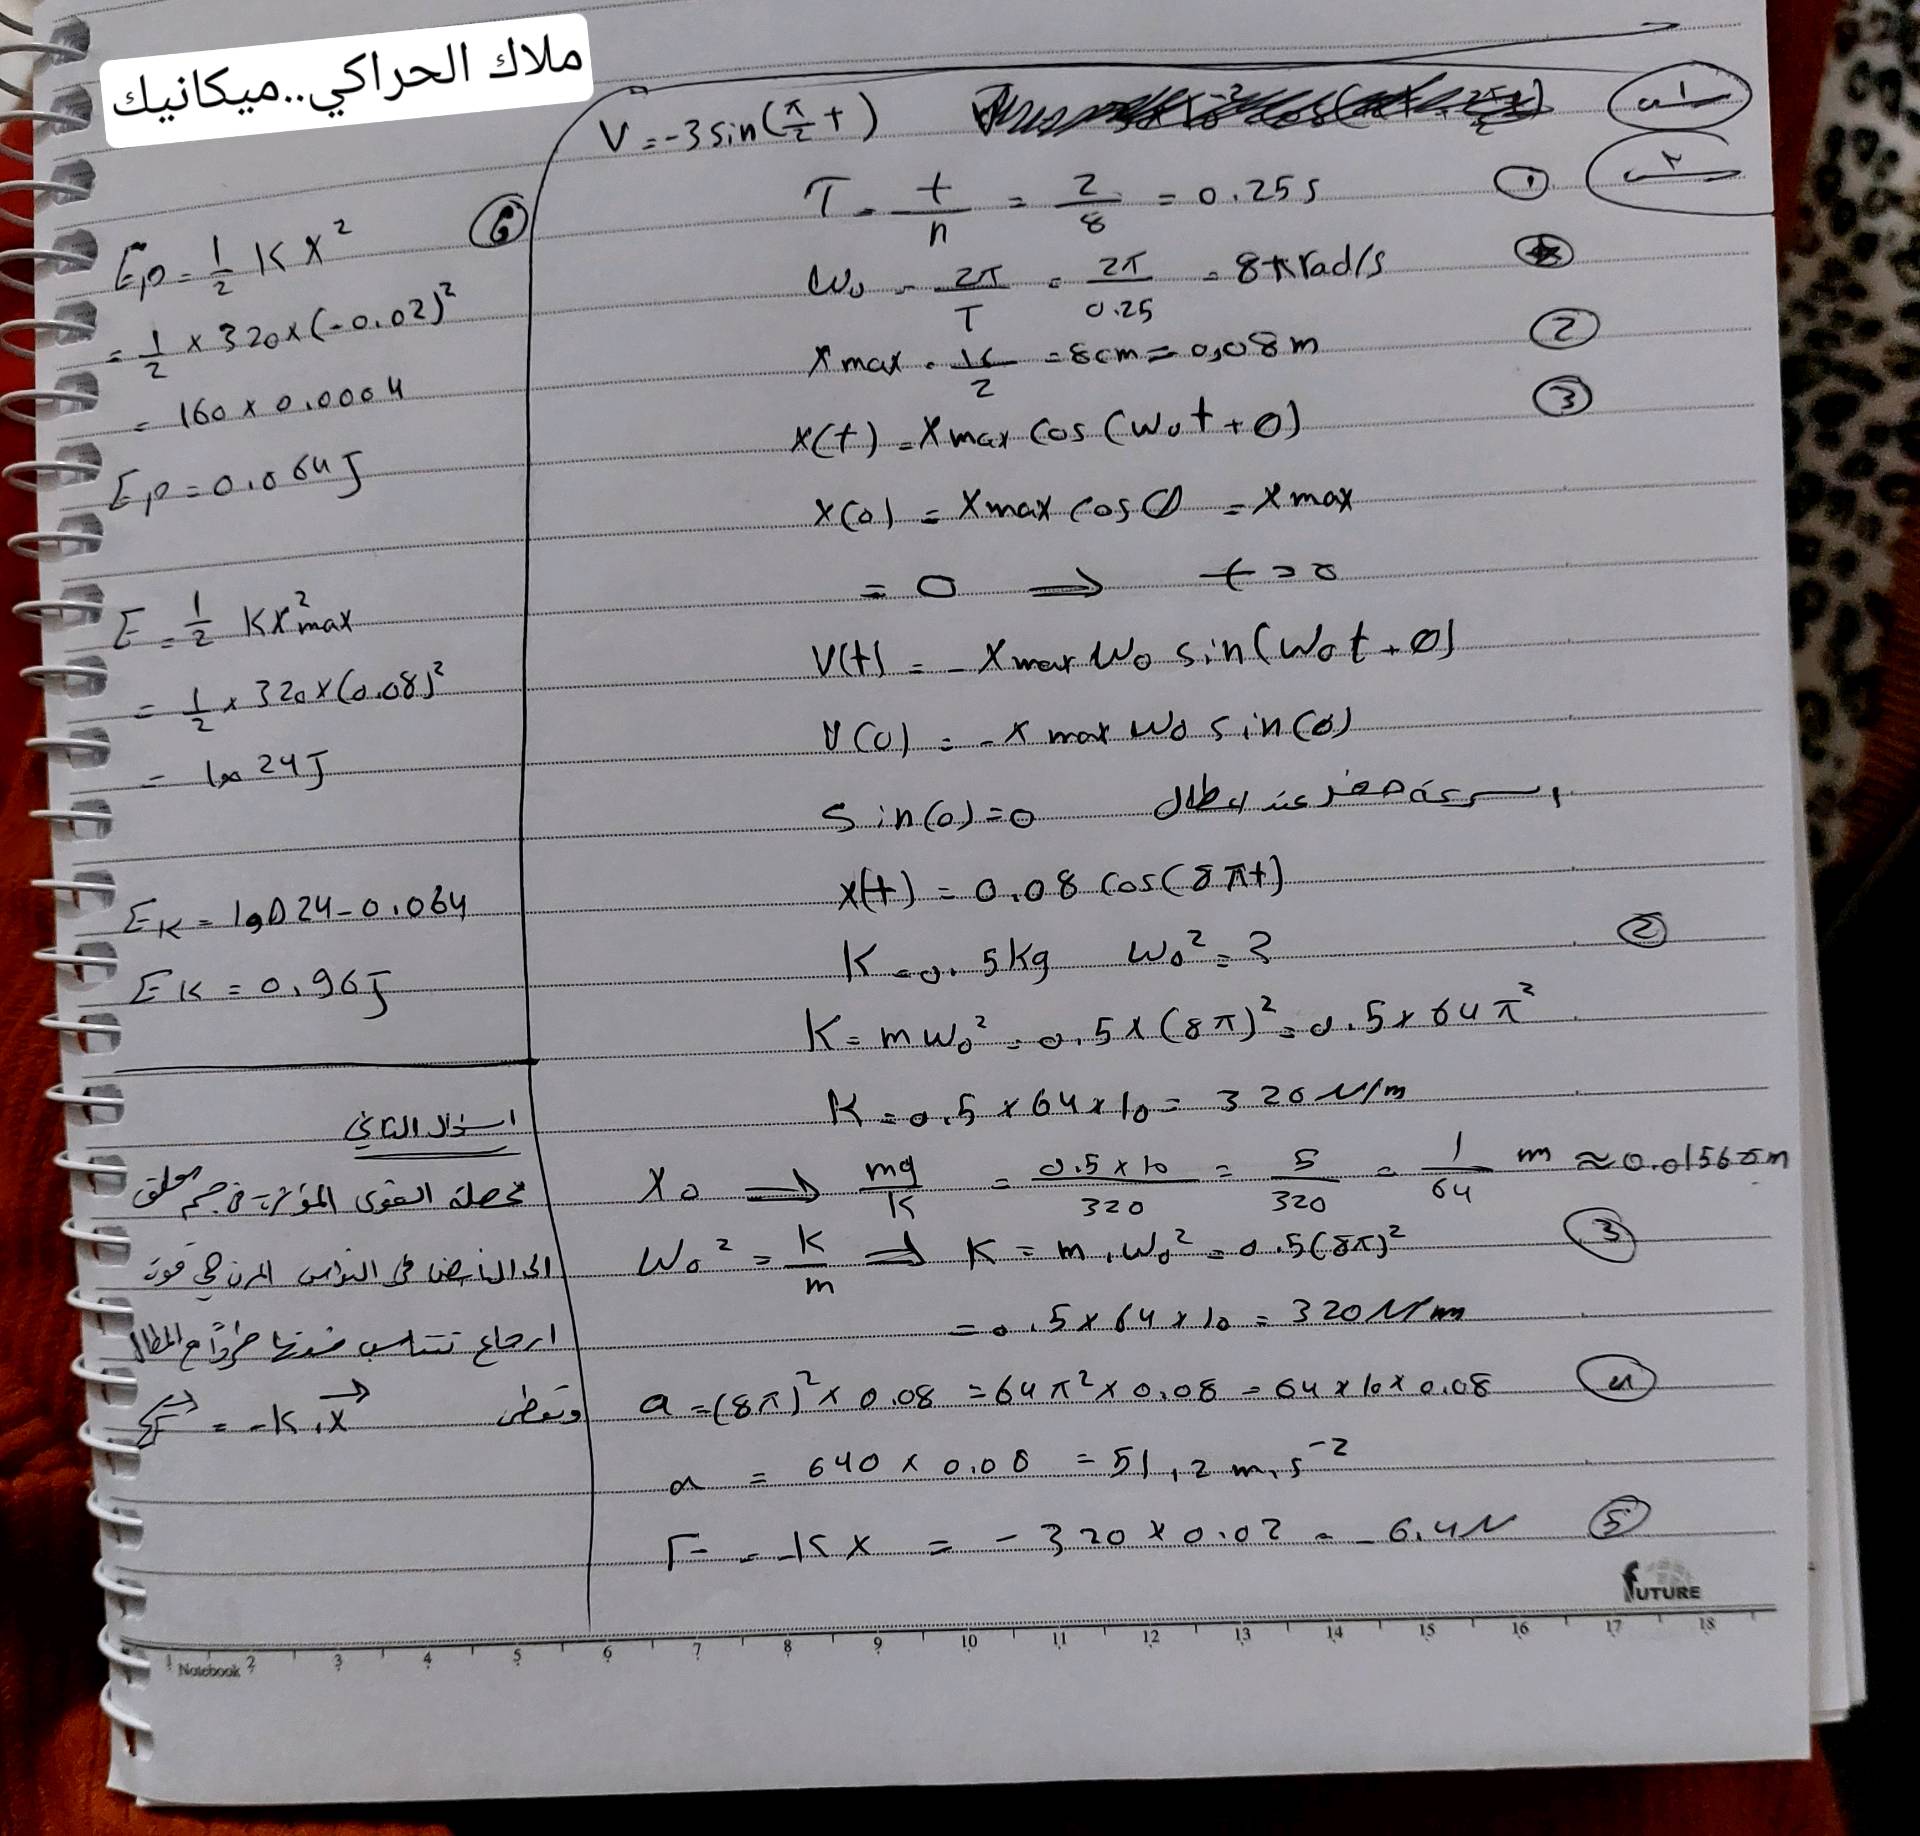 ملاك الحراكي..ميكانيك
س١
V = -3 sin(π/2 t)
س٢
① T = t/n = 2/8 = 0.25 s
ω₀ = 2π/T = 2π/0.25 = 8π rad/s
② Xmax = 16/2 = 8cm = 0,08 m
③ x(t) = Xmax cos(ω₀t + Ø)
x(0) = Xmax cos Ø = Xmax
= 0 ⟹ t = 0
V(t) = - Xmax ω₀ sin(ω₀t + Ø)
V(0) = - Xmax ω₀ sin(Ø)
sin(0) = 0 السرعة صفر عند المطال
x(t) = 0.08 cos(8πt)
② K = 0.5kg ω₀² = ?
K = mω₀² = 0.5 x (8π)² = 0.5 x 64π²
K = 0.5 x 64 x 10 = 320 N/m
X₀ ⟹ mg/K = 0.5 x 10/320 = 5/320 = 1/64 m ≈ 0.01565m
③ ω₀² = K/m ⟹ K = m.ω₀² = 0.5(8π)²
= 0.5 x 64 x 10 = 320 N/m
④ a = (8π)² x 0.08 = 64π² x 0.08 = 64 x 10 x 0.08
a = 640 x 0.08 = 51,2 m.s⁻²
⑤ F = -Kx = -320 x 0.02 = -6.4N
⑥ Ep = 1/2 K X²
= 1/2 x 320 x (-0.02)²
= 160 x 0.0004
Ep = 0.064J
E = 1/2 KX²max
= 1/2 x 320 x (0.08)²
= 1.024J
EK = 1.024 - 0.064
EK = 0.96J
السؤال الثاني
محصلة القوى المؤثرة في جسم معلق
الى النابض في النواس المرن هي قوة
ارجاع تتناسب شدتها طرداً مع المطال
وتعطى F = -K.x
FUTURE
Notebook
1 2 3 4 5 6 7 8 9 10 11 12 13 14 15 16 17 18